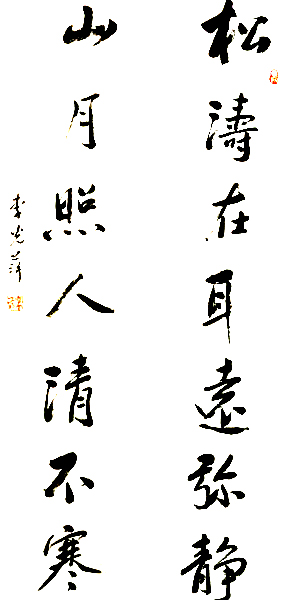 松濤在耳遠弥静
山月照人清不寒
李光